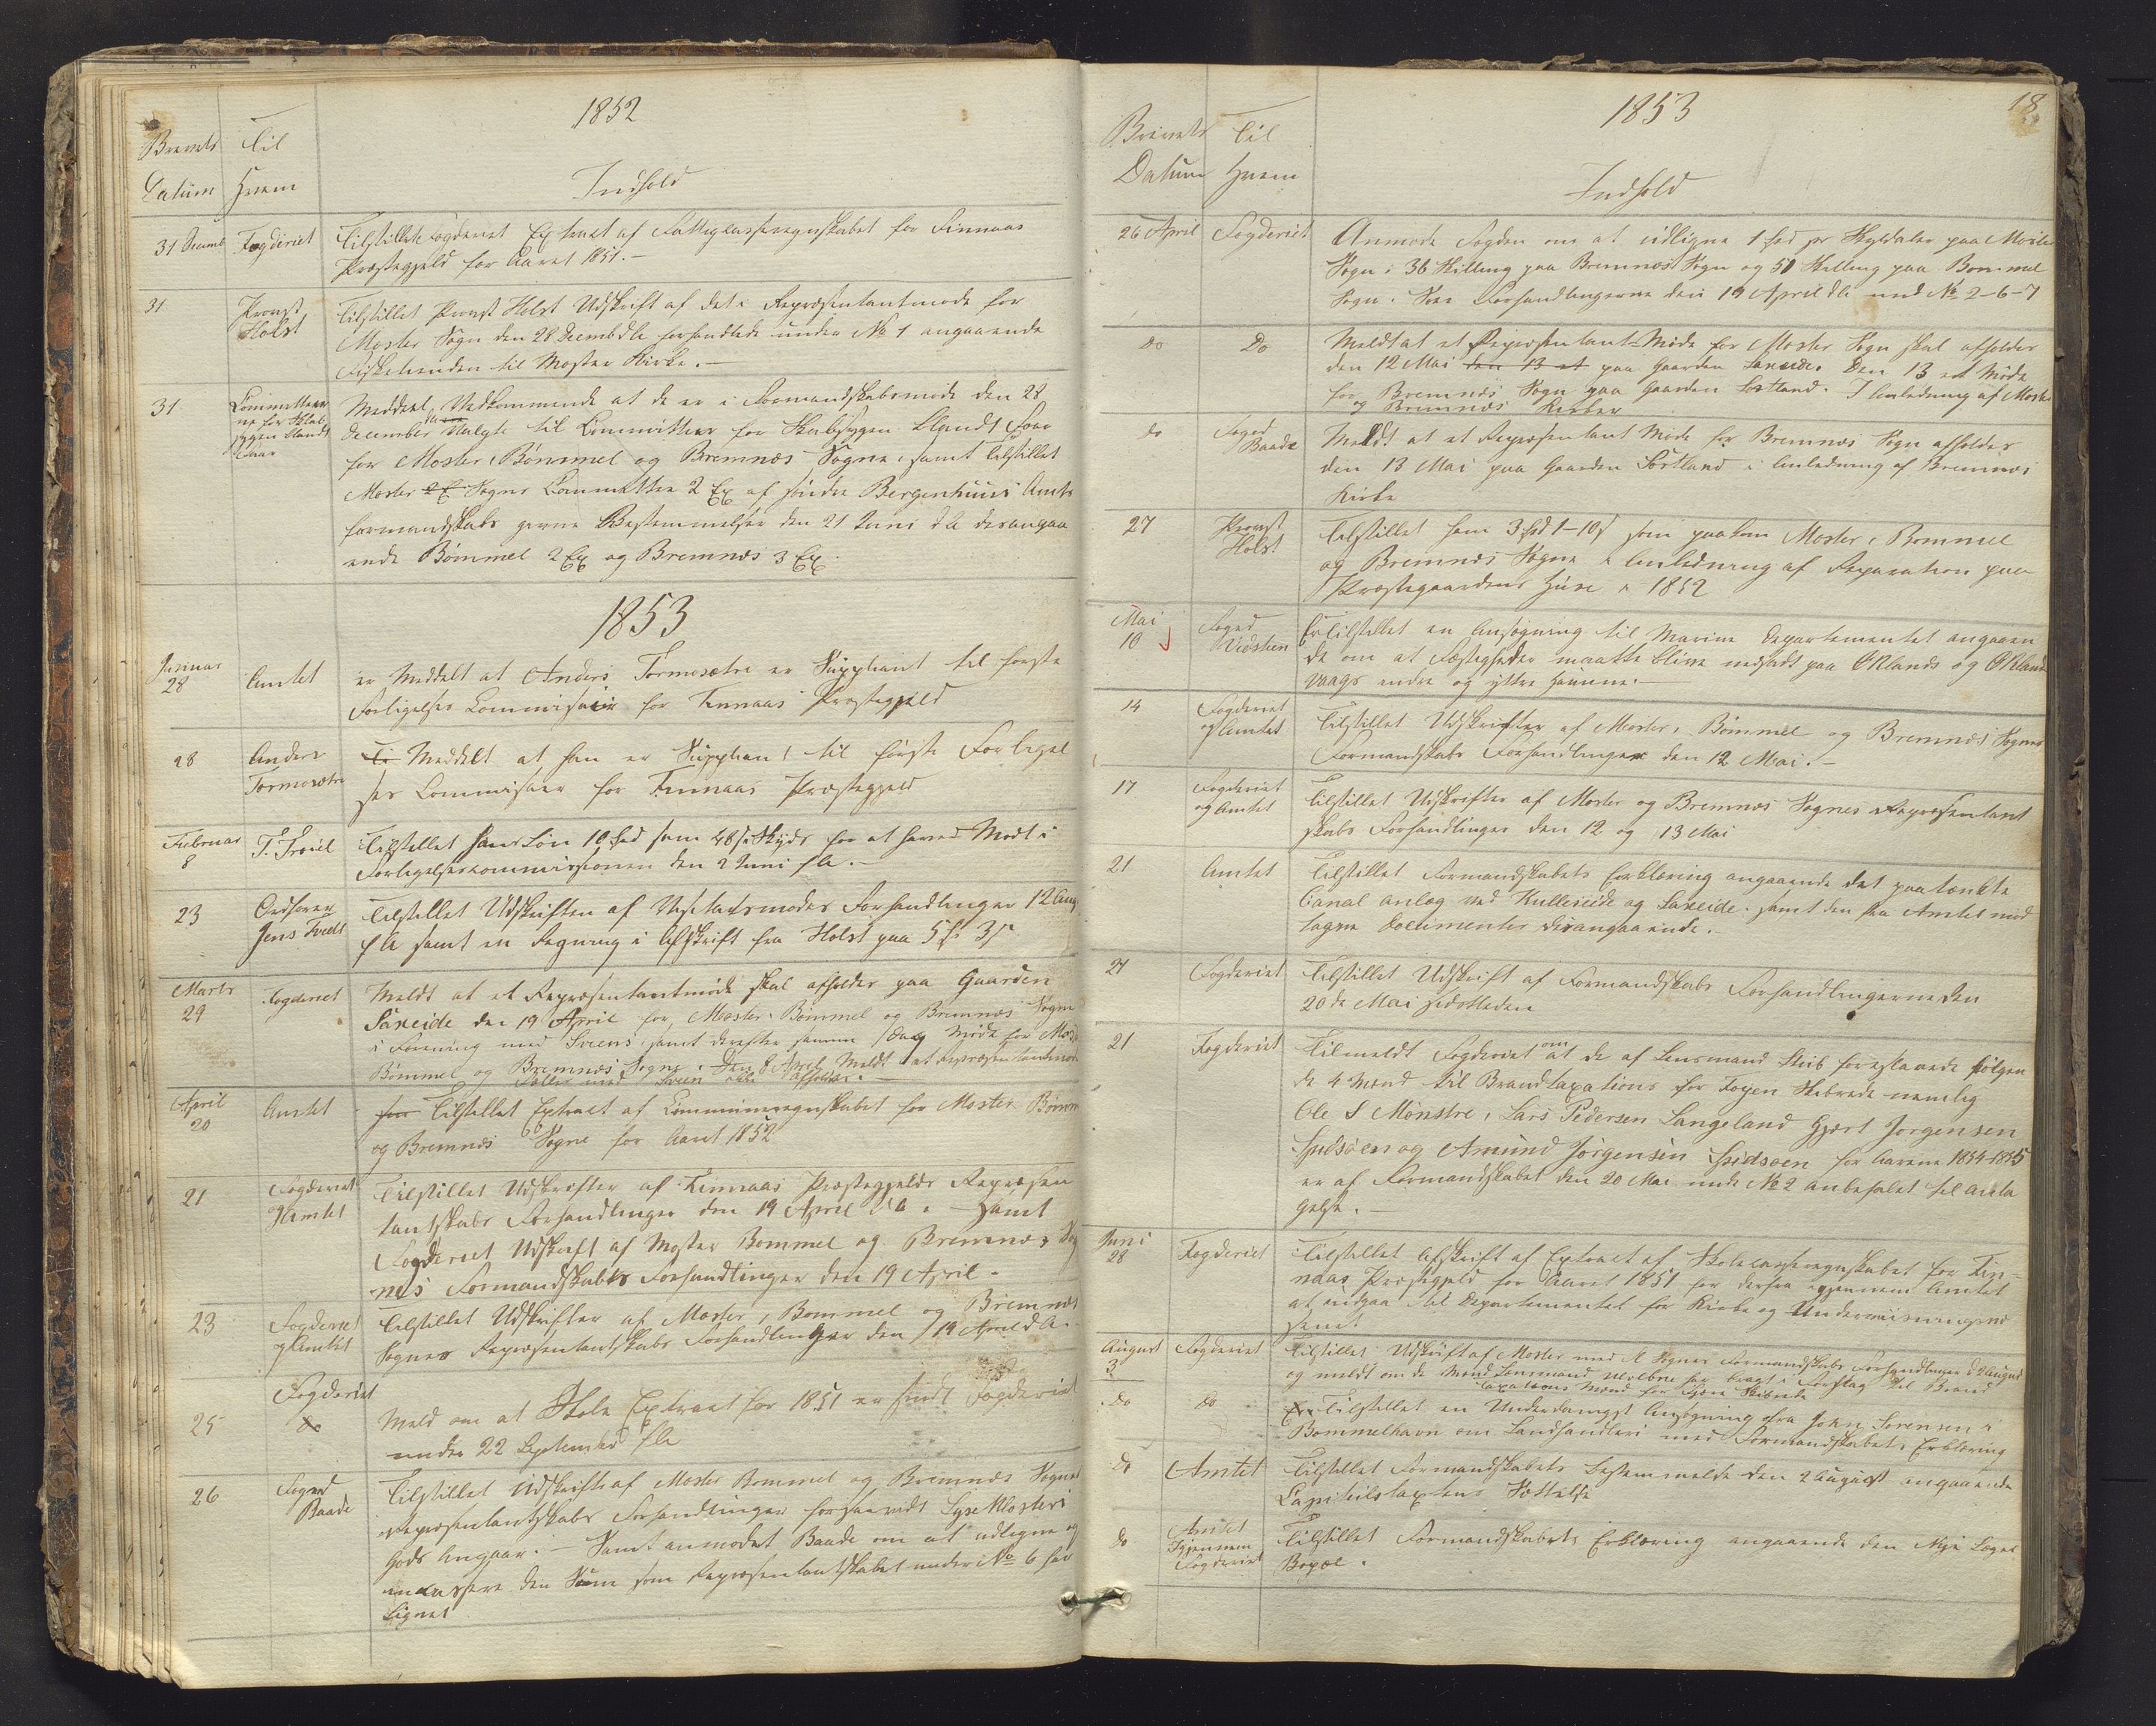 1852
Brevets Til
Datum Hvem
Indhold
31 Decemb Fogderiet Tilstillet Fogderiet Extract af Fattigkasseregnskabet for Finnaas
Præstegjeld for Aaret 1851.-
31 Provst Holst Tilstillet Provst Holst Udskrift af det i Repræsentantmøde for
Moster Sogn den 28 Decemb dA forhandlede under No 1 angaaende
Fisketienden til Moster Kirke.-
31 Committeerne for Skabsygen blandt Faar Meddeel Vedkommende at de er i Formandskabsmøde den 28
December Valgte til Committeer for Skabsygen blandt Faar
for Moster, Bømmel og Bremnæs Sogne, samt tilstillet
Moster Sogns Committee 2 Ex af søndre Bergenhuus Amts
formandskabs Bestemmelser den 21 Juni dA desangaa
ende Bømmel 2 Ex og Bremnæs 3 Ex.
1853
Januar 28 Amtet er Meddelt at Anders Tormosætre er Suppliant til første
Forligelses Commisair for Finnaas Præstegjeld
28 Anders Tormosætre Meddelt at han er Suppliant til første Forligel
ses Commisair for Finnaas Præstegjeld
Februar 8 Tilstillet hans Løn 10 som 48 s Skyds for at have Mødt i
Forligelseskommissionen den 2 Juni fA.-
23 Ordfører Jens Tvedt Tilstillet Udskriften af Visitatsmødes Forhandlinger 12 Aug
fA samt en Regning i Afskrift fra Holst paa 5 3 s
Marts 29 Fogderiet Meldt at et Repræsentantmøde skal afholdes paa Gaarden
Saxeide den 19 April for Moster, Bømmel og Bremnæs Sogne
i Forening med Sveens samt derefter samme Dag Møde for Moster
Bømmel og Bremnæs Sogne. Den 8 April Meldt at repræsentantmøde
fælles med Sveen ikke afholdes.-
April 20 Amtet Tilstillet Extract af Communeregnskabet for Moster Bømm
og Bremnæs Sogne for Aaret 1852
21 Fogderiet og Amtet Tilstillet Udskrifter af Finnaas Præstegjelds Repræsen
tantskabs Forhandlinger den 19 April dA. - samt
Fogderiet Udskrift af Moster Bømmel og Bremnæs Sog
nes Formandskabs Forhandlinger den 19 April.
23 Fogderiet og Amtet Tilstillet Udskrifter af Moster, Bømmel og Bremnæs
Sognes Repræsentantskabs Forhandlinger den 19 April dA.
25 Fogderiet Meld om at Skole Extract for 1851 er sendt Fogderiet
under 22 September fA
26 Foged Baade Tilstillet Udskrift af Moster Bømmel og Bremnæs Sognes
Repræsentantskabs Forhandlinger forsaavidt Lyse Klosters
Gods angaar.- Samt anmodet Baade om at udligne og
incassere den Sum som Repræsentantskabet under No 6 har
Lignet
1853
18
Brevets Til
Datum Hvem
Indhold
26 April Fogderiet Anmode Fogden om at udligne 1 per Skyldaler paa Moster
Sogn, 36 Skilling paa Bremnæs Sogn og 50 Skilling paa Bømmel
Sogn. See Forhandlingerne den 19 April dA under No 2-6-7
do Do Meldt at et Repræsentant-Møde for Moster Sogn skal afholdes
den 12 Mai den 13 et paa Gaarden Saxeide. Den 13 et Møde
for Bremnæs Sogn paa Gaarden Sortland. I Anledning af Moster
og Bremnæs Kirker
do Foged Baade Meldt at et Repræsentant Møde for Bremnæs Sogn afholdes
den 13 Mai paa Gaarden Sortland i Anledning af Bremnæs
Kirke
27 Provst Holst Tilstillet ham 3 1-10 s som paakom Moster, Bømmel
og Bremnæs Sogne i Anledning af Reparation paa
Præstegaardens Huse i 1852
Mai 10 Foged Vidsteen Er Tilstillet en Ansøgning til Marine Departementet angaaen
de om at Fæstigheder maatte blive nedsadt paa Øklands og Økland
Vaags indre og ydtre Havne.-
14 Fogderiet og Amtet Tilstillet Udskrifter af Moster, Bømmel og Bremnæs Sognes
Formandskabs Forhandlinger den 12 Mai.-
17 Fogderiet og Amtet Tilstillet Udskrifter af Moster og Bremnæs Sognes Repræsentant
skabs Forhandlinger den 12 og 13 Mai
21 Amtet Tilstillet Formandskabets Erklæring angaaende det paatænkte
Canal anlæg ved Kulleseide og Saxeide. samt den fra Amtet mod
tagne Documenter desangaaende.
21 Fogderiet Tilstillet Udskrift af Formandskabs Forhandlingerne den
20de Mai sidstleden
21 Fogderiet Tilmeldt Fogderiet om at de af Lensmand Skib foreslaaede følgen
de 4 Mænd til Brandtaxations for Fogen Skibrede nemlig
Ole S Mønstre, Lars Pedersen Langeland Gjert Jorgensen
Spidsøen og Amund Jørgensen Spidsøen for Aarene 1854-1855
er af Formandskabet den 20 Mai under No 2 anbefalet til Anta
gelse.-
Juni 28 Fogderiet Tilstillet Afskrift af Extract af Skolecasseregnskabet for Fin-
naas Præstegjeld for Aaret 1851 for derfra igjennem Amtet
at indgaa til Departementet for Kirke og Underviisningsvæ
senet
August 3 Fogderiet Tilstillet Udskrift af Moster med Fl Sognes Formandskabs Forhandlinger d 2 August
og meldt om de Mænd Lensmand har bragt i Forslag til Brand
taxations Mænd for Skibrede
do do Tilstillet en Underdanigst Ansøgning fra John Sørensen i
Bømmelhavn om Landhandleri med Formandskabets Erklæring
do Amtet Tilstillet Formandskabets Bestemmelse den 2 August angaaende
Capitulstaxtens Sættelse
do Amtet Igjennem Fogderiet Tilstillet Formandskabets Erklæring angaaende den Nye Læges
Bopæl.